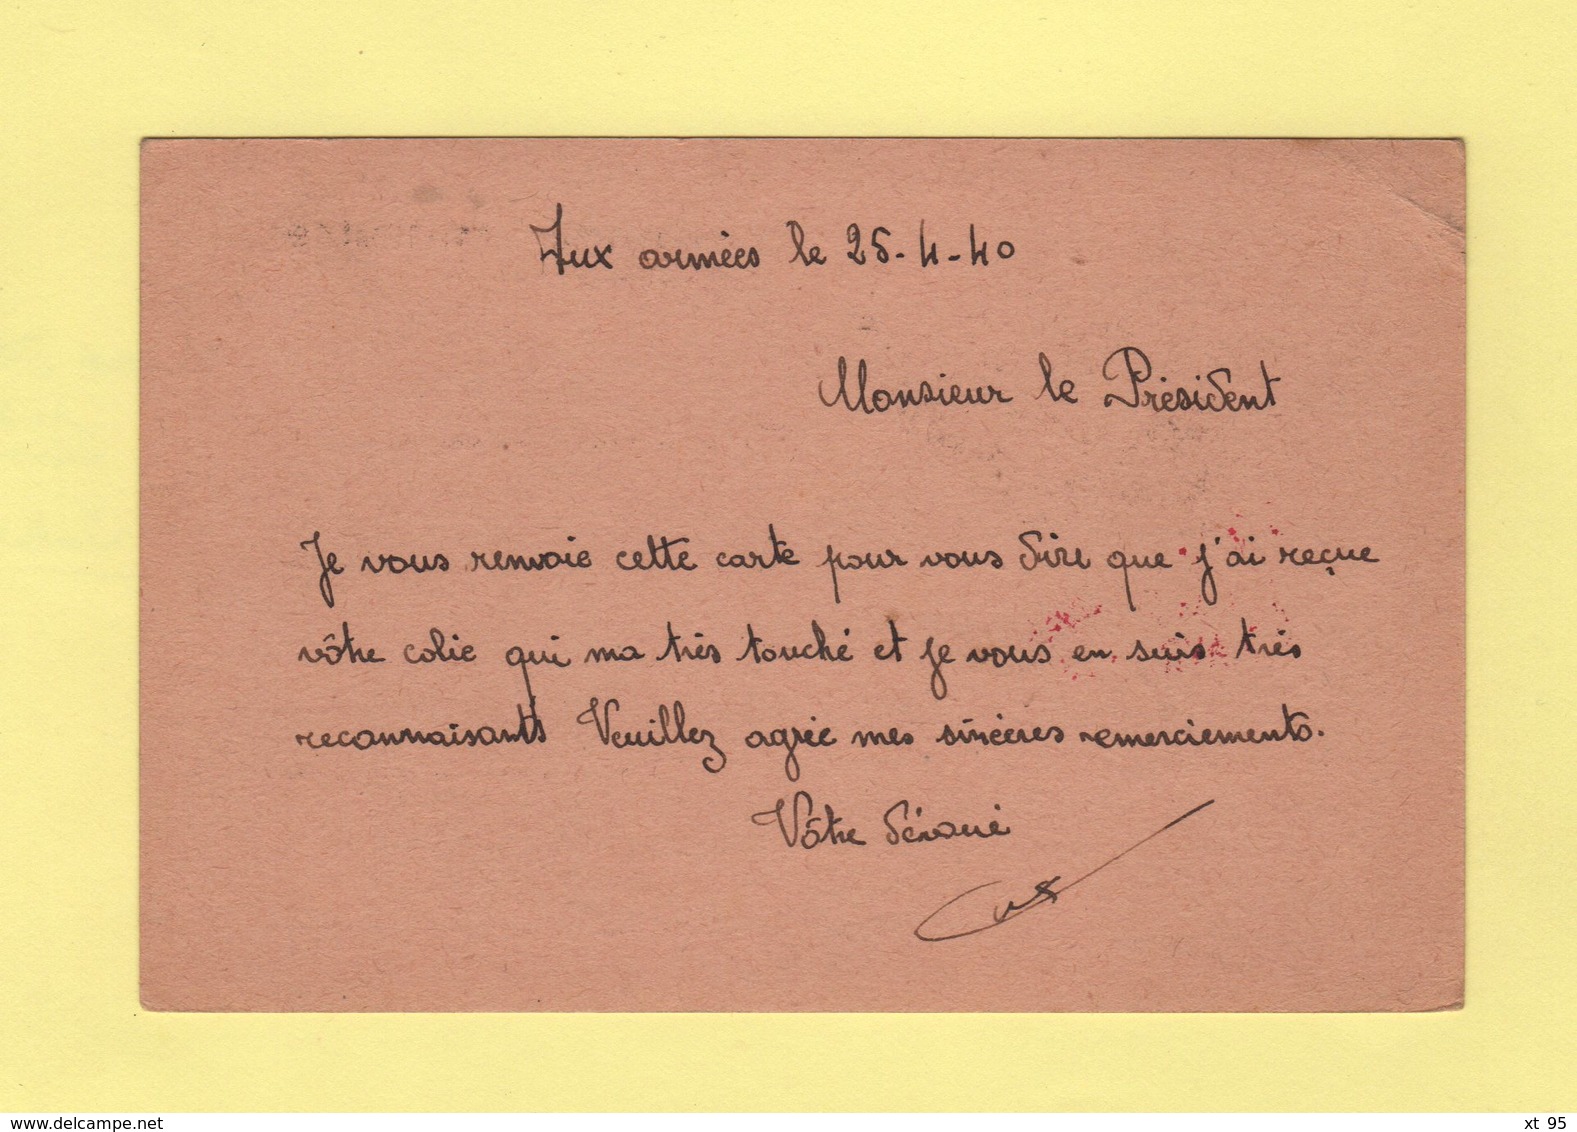 Aux armées le 25-4-40
Monsieur le Président
Je vous renvoie cette carte pour vous dire que j'ai reçue
vôtre colie qui ma très touché et je vous en suis très
reconnaisants Veuillez agrée mes sincères remerciements.
Vôtre dévoué
www.delcampe.net
xt 95